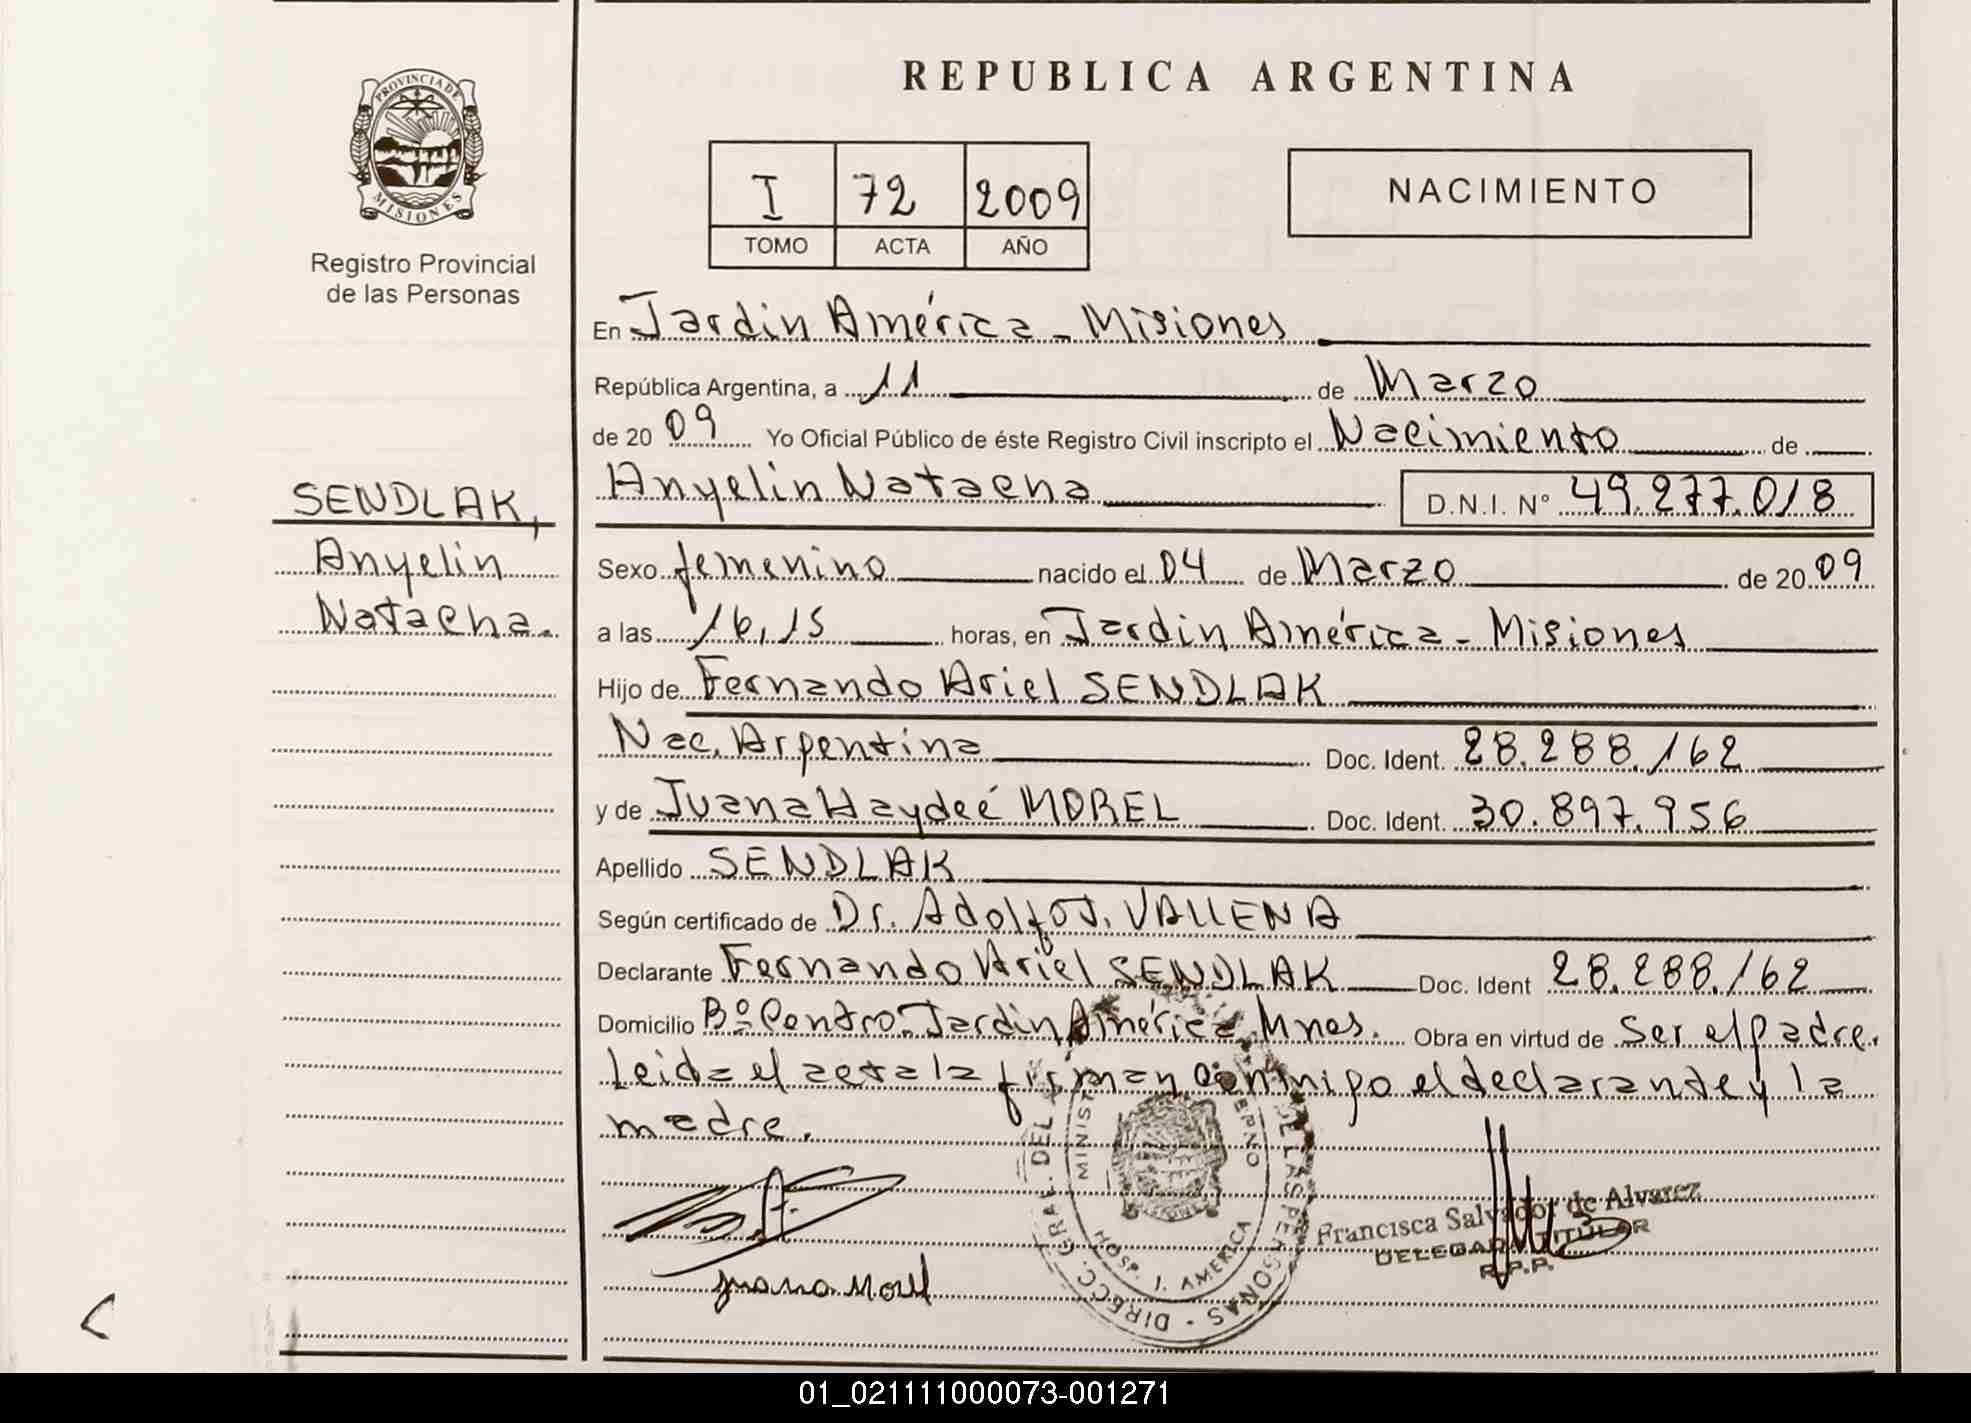 PROVINCIA DE
MISIONES
Registro Provincial
de las Personas
SENDLAK,
Anyelin
Natacha.
REPUBLICA ARGENTINA
I 72 2009
TOMO ACTA AÑO
NACIMIENTO
En Jardin América - Misiones
República Argentina, a 11 de Marzo
de 2009 Yo Oficial Público de éste Registro Civil inscripto el Nacimiento de
Anyelin Natacha D.N.I. Nº 49.277.018
Sexo femenino nacido el 04 de Marzo de 2009
a las 16,15 horas, en Jardin América - Misiones
Hijo de Fernando Ariel SENDLAK
Nac. Argentina Doc. Ident. 28.288.162
y de Juana Haydeé MOREL Doc. Ident. 30.897.956
Apellido SENDLAK
Según certificado de Dr. Adolfo J. VALLENA
Declarante Fernando Ariel SENDLAK Doc. Ident 28.288.162
Domicilio Bº Centro. Jardin América, Mnes. Obra en virtud de Ser el padre.
Leida el acta la firman conmigo el declarante y la
madre.
Juana Morel
DIRECC. GRAL. DEL DE LAS PERSONAS
HOSP. J. AMERICA
Francisca Salvador de Alvarez
DELEGADA TITULAR
R.P.P.
01_021111000073-001271